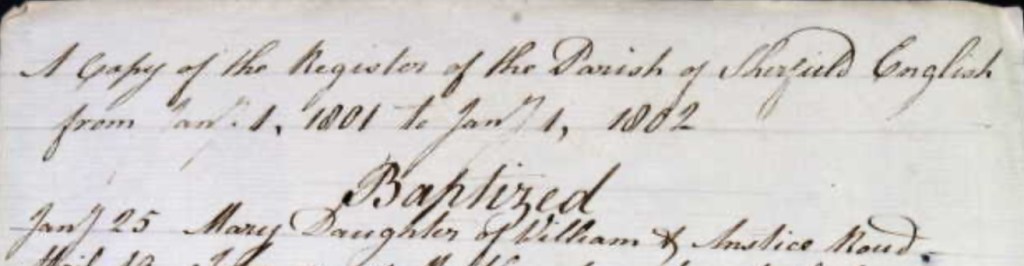 A Copy of the Register of the Parish of Sherfield English
from Jany. 1, 1801 to Jany 1, 1802
Baptized
Jany 25 Mary Daughter of William & Anstice Roud.